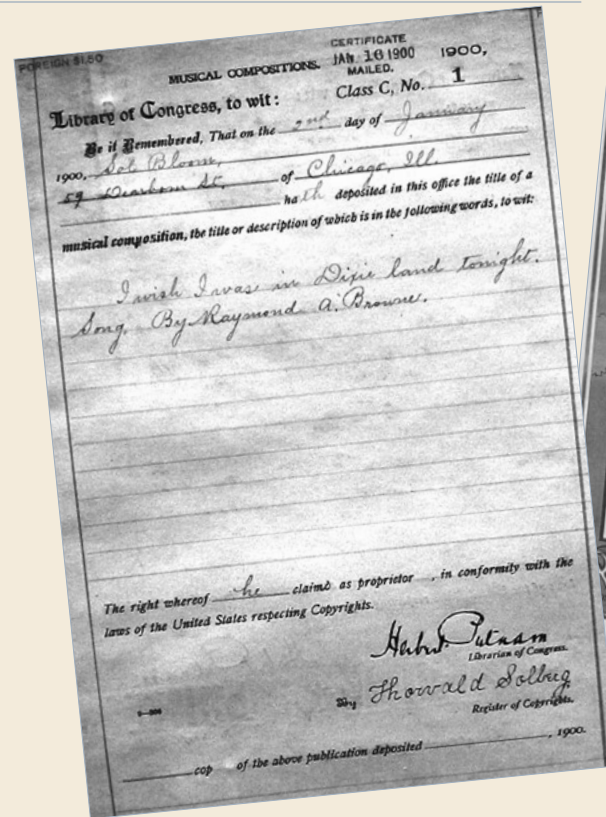 FOREIGN $1.50
CERTIFICATE
JAN. 16 1900
MAILED.
MUSICAL COMPOSITIONS.
1900,
Library of Congress, to wit:
Class C, No. 1
Be it Remembered, That on the 2nd day of January
1900, Sol Bloom,
59 Dearborn St, of Chicago, Ill.
hath deposited in this office the title of a
musical composition, the title or description of which is in the following words, to wit:
I wish I was in Dixie land tonight.
Song. By Raymond A. Browne.
The right whereof he claims as proprietor , in conformity with the
laws of the United States respecting Copyrights.
Herbert Putnam
Librarian of Congress.
By Thorvald Solberg
Register of Copyrights.
cop of the above publication deposited , 1900.